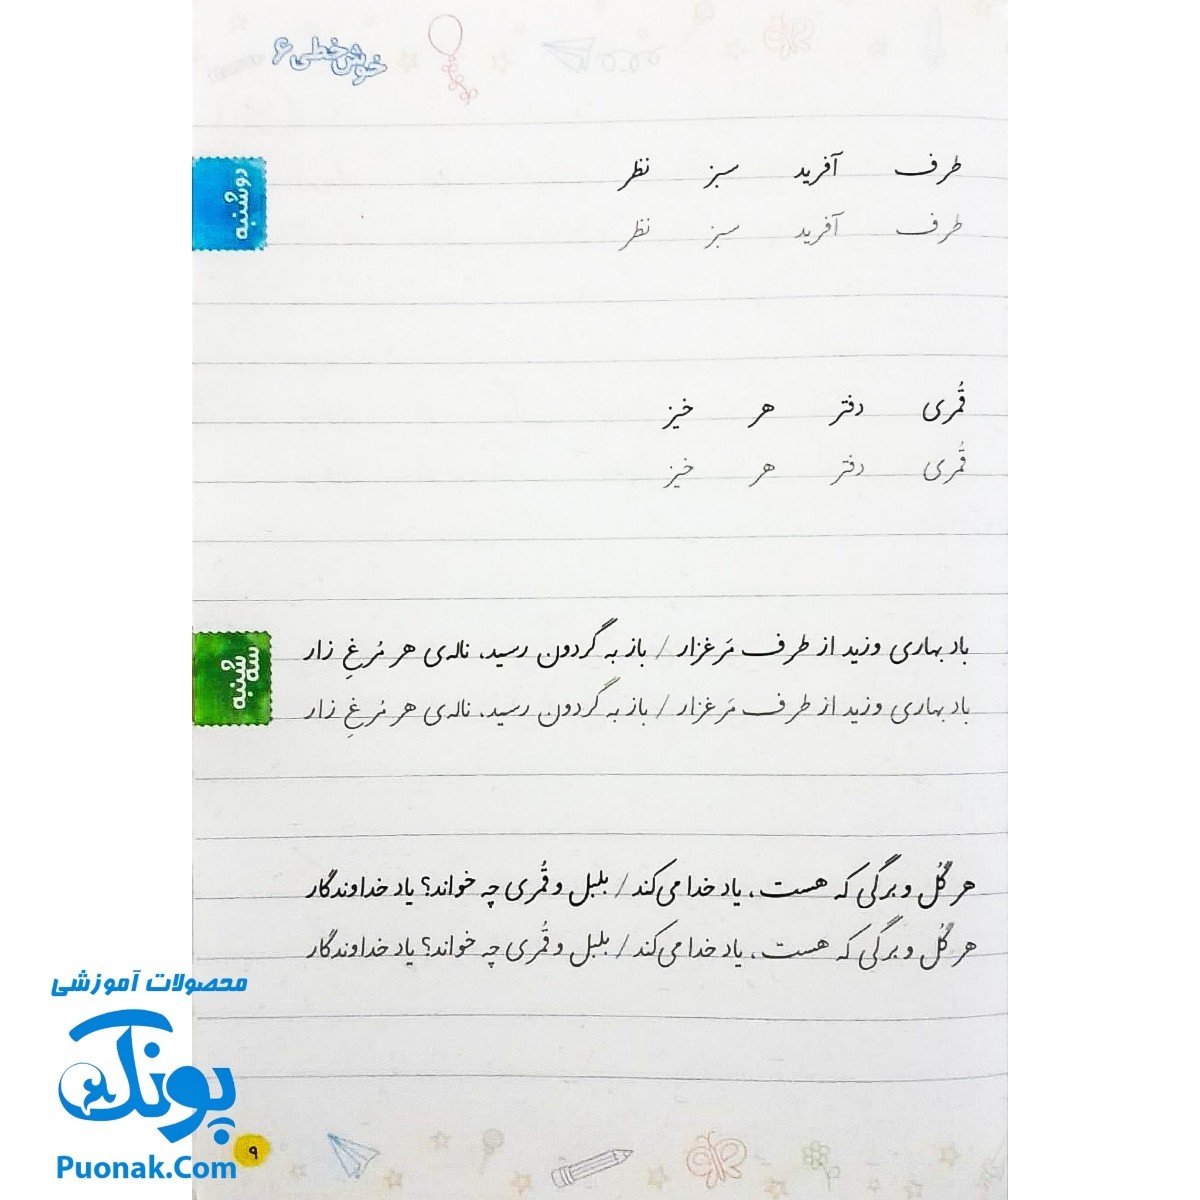 خوش‌خطی ۶
دوشنبه
طرف آفرید سبز نظر
طرف آفرید سبز نظر
قُمری دفتر هر خیز
قُمری دفتر هر خیز
سه‌شنبه
باد بهاری وزید از طرف مَرغزار / باز به گردون رسید، ناله‌ی هر مُرغِ زار
باد بهاری وزید از طرف مَرغزار / باز به گردون رسید، ناله‌ی هر مُرغِ زار
هر گُل و برگی که هست، یاد خدا می‌کند / بلبل و قُمری چه خواند؟ یاد خداوندگار
هر گُل و برگی که هست، یاد خدا می‌کند / بلبل و قُمری چه خواند؟ یاد خداوندگار
محصولات آموزشی
پونک
Puonak.Com
۹